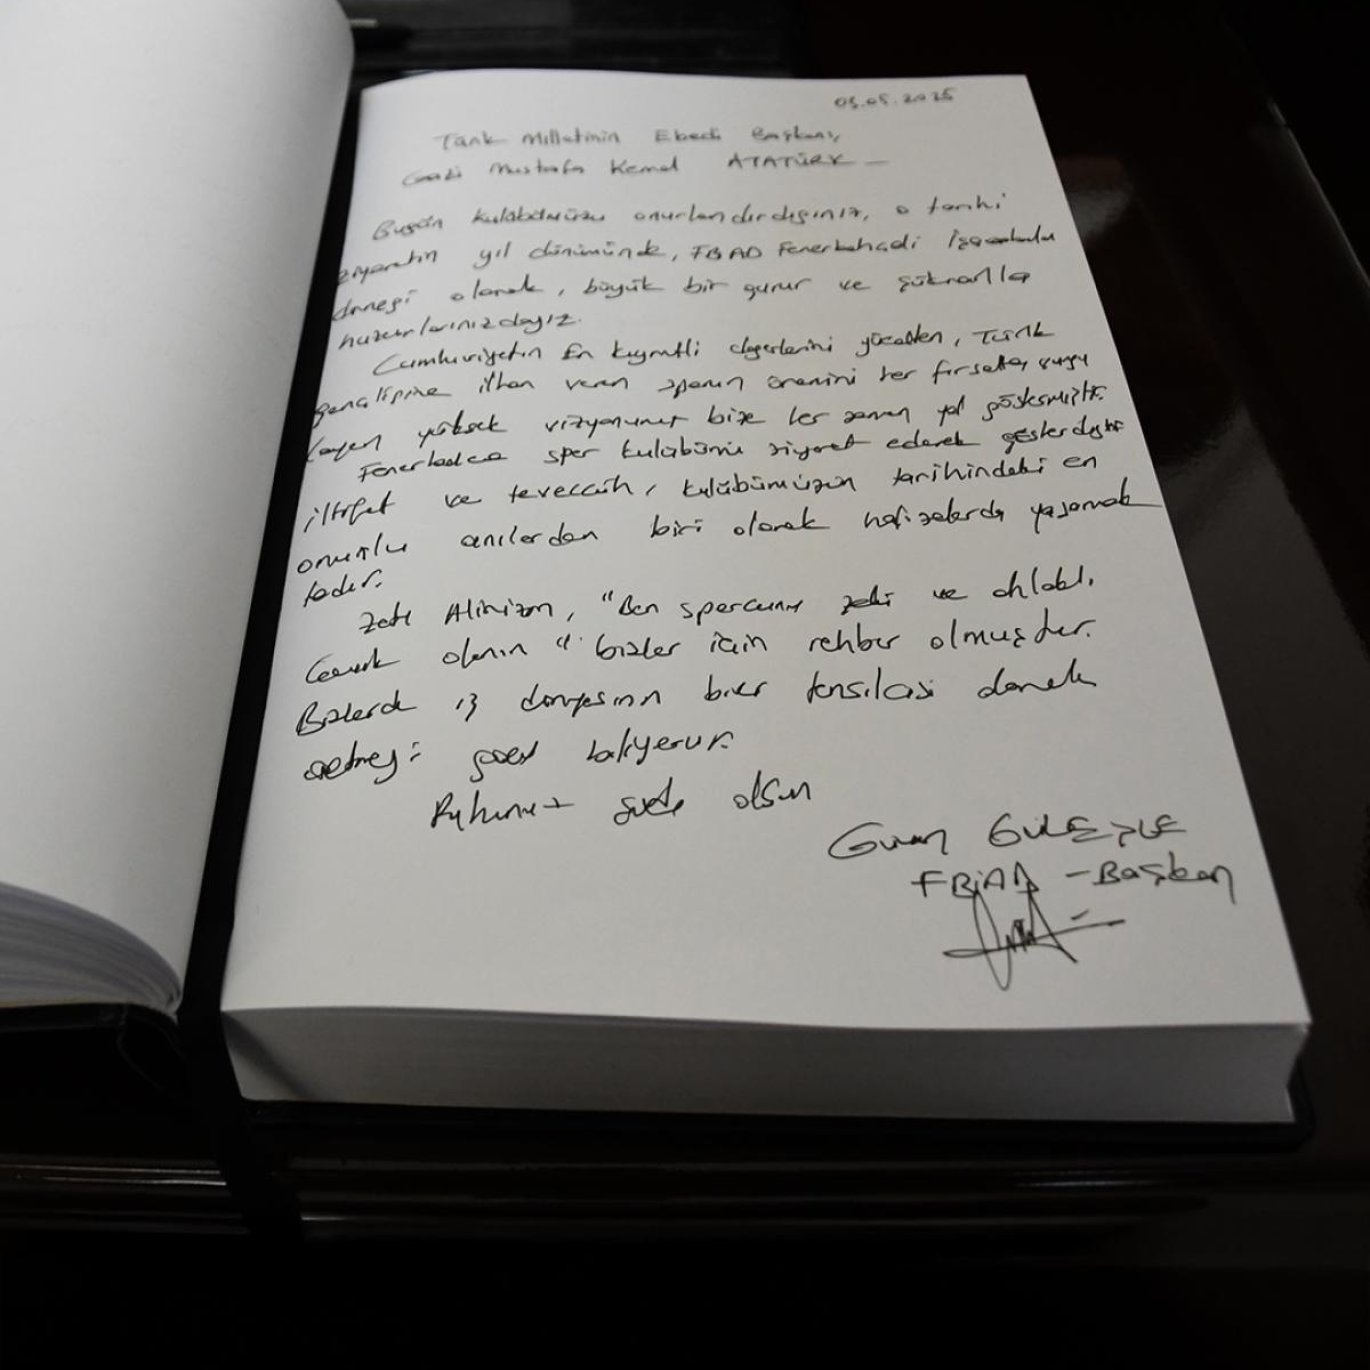 03.05.2025
Türk Milletinin Ebedi Başkanı,
Gazi Mustafa Kemal ATATÜRK –
Bugün kulübümüzü onurlandırdığınız, o tarihi
ziyaretin yıl dönümünde, FBİAD Fenerbahçeli İşadamları
derneği olarak, büyük bir gurur ve şükranlla
huzurlarınızdayız.
Cumhuriyetin En kıymetli değerlerini yücelten, Türk
gençliğine ilham veren sporun önemini her fırsatta
yüksek vizyonunuz bize her zaman yol göstermiştir.
Fenerbahçe spor kulübünü ziyaret ederek gösterdiğiniz
iltifat ve teveccüh, kulübümüzün tarihindeki en
onurlu anılardan biri olarak hafızalarda yaşamak
tadır.
Zatı Alinizin, "Ben sporcunun zeki ve ahlaklı,
olanın" bizler için rehber olmuştur.
Bizlerde iş dünyasının birer temsilcisi olarak
Ruhunuz şad olsun
FBİAD – Başkan